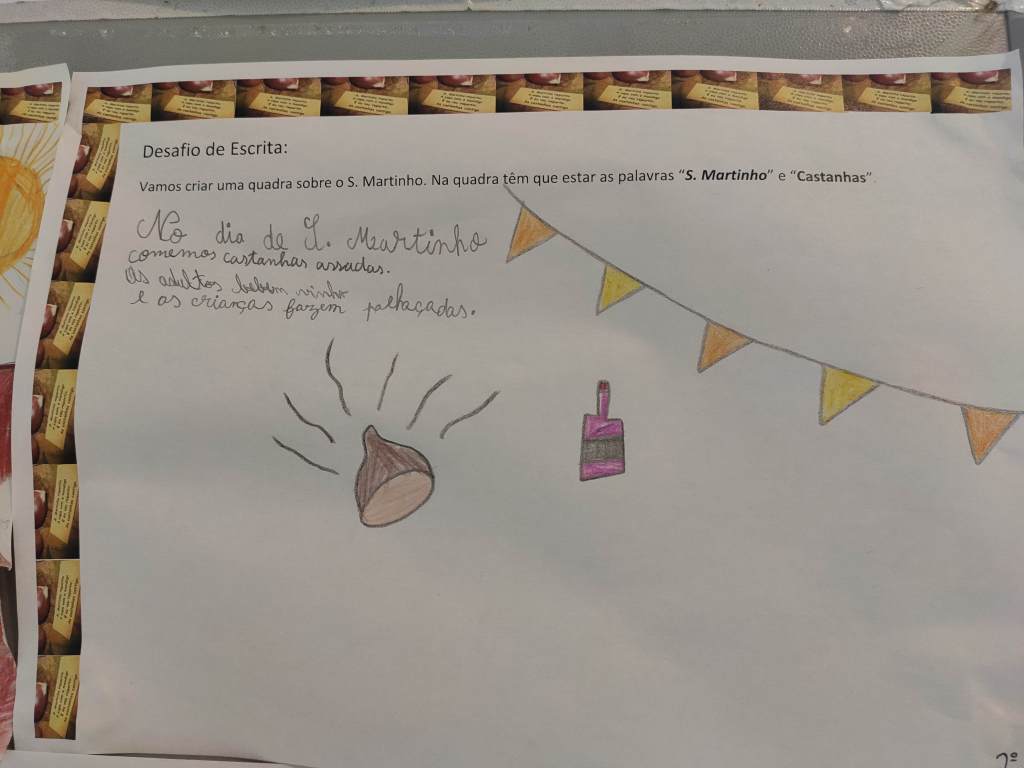 Desafio de Escrita:
Vamos criar uma quadra sobre o S. Martinho. Na quadra têm que estar as palavras “S. Martinho” e “Castanhas”.
No dia de S. Martinho
comemos castanhas assadas.
Os adultos bebem vinho
e as crianças fazem palhaçadas.